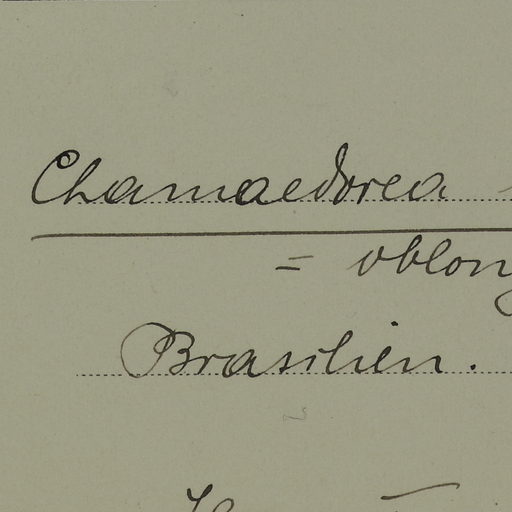 Chamaedorea
= oblong
Brasilien.